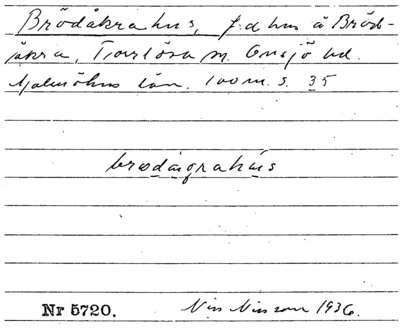 Brödåkrahus, f.d hus å Bröd-
åkra, Torrlösa sn. Onsjö hd.
Malmöhus län. 100 m. S. 35
brødåɡrahús
Nr 5720.
Nils Nilsson 1936.